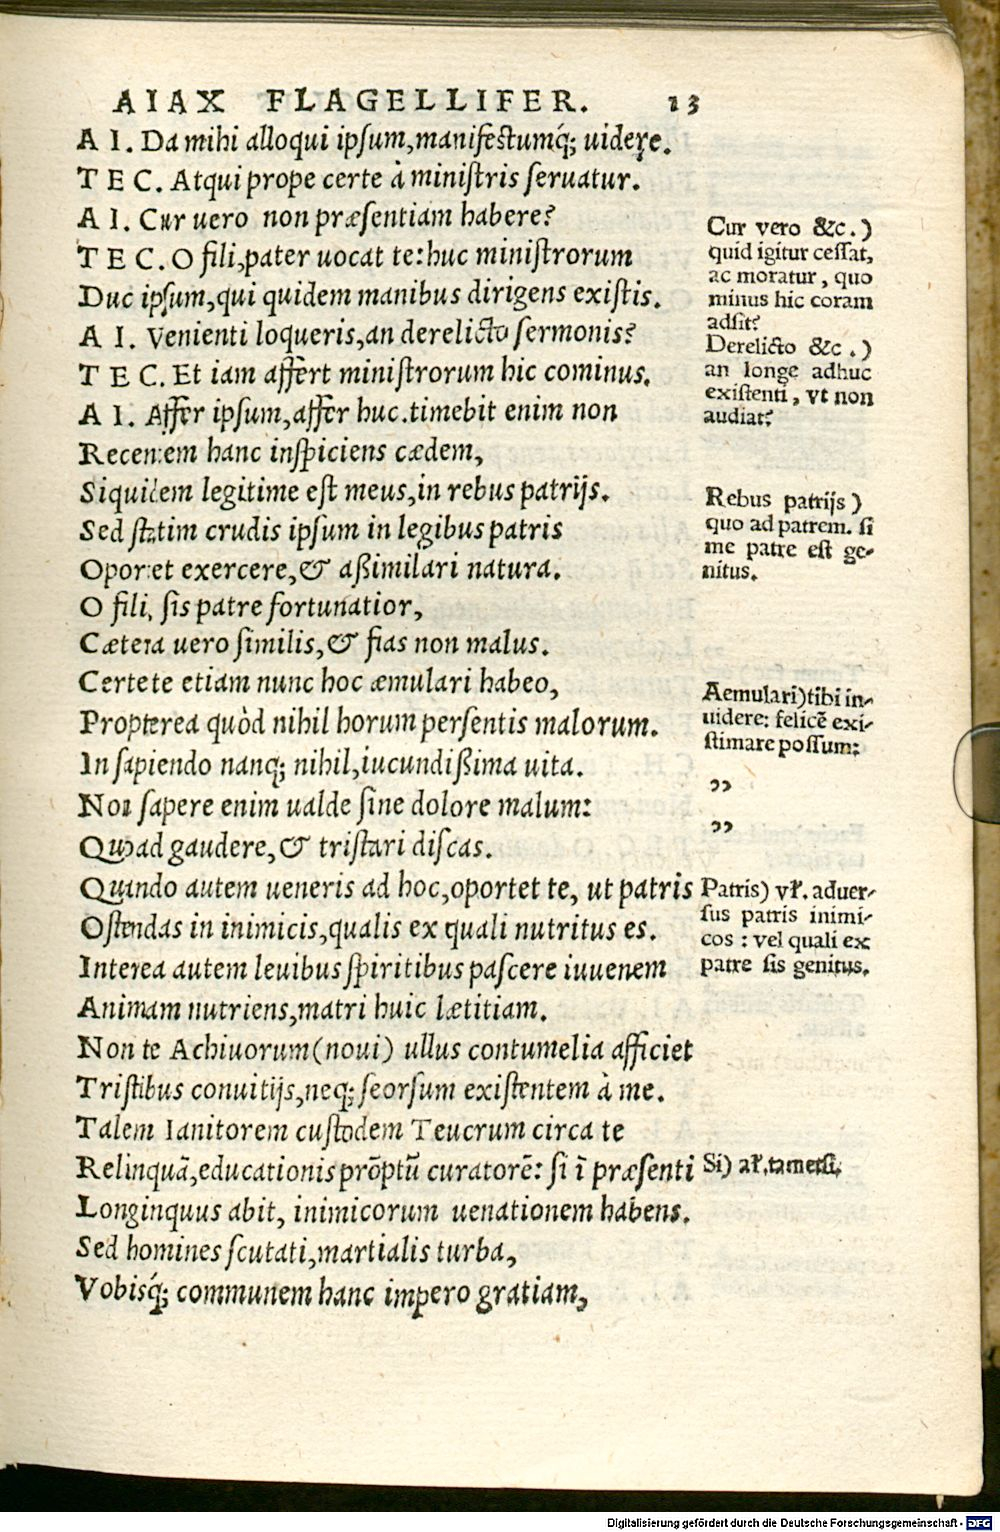 AIAX FLAGELLIFER. 13
A I. Da mihi alloqui ipsum, manifestumq́; uidere.
T E C. Atqui prope certe à ministris seruatur.
A I. Cur uero non præsentiam habere?
T E C. O fili, pater uocat te: huc ministrorum
Duc ipsum, qui quidem manibus dirigens existis.
A I. Venienti loqueris, an derelicto sermonis?
T E C. Et iam affert ministrorum hic cominus.
A I. Affer ipsum, affer huc. timebit enim non
Recentem hanc inspiciens cædem,
Siquidem legitime est meus, in rebus patrijs.
Sed statim crudis ipsum in legibus patris
Oportet exercere, & aßimilari natura.
O fili, sis patre fortunatior,
Cætera uero similis, & fias non malus.
Certe te etiam nunc hoc æmulari habeo,
Propterea quòd nihil horum persentis malorum.
In sapiendo nanq; nihil, iucundißima uita.
Non sapere enim ualde sine dolore malum:
Quoad gaudere, & tristari discas.
Quando autem ueneris ad hoc, oportet te, ut patris
Ostendas in inimicis, qualis ex quali nutritus es.
Interea autem leuibus spiritibus pascere iuuenem
Animam nutriens, matri huic lætitiam.
Non te Achiuorum (noui) ullus contumelia afficiet
Tristibus conuitijs, neq; seorsum existentem à me.
Talem Ianitorem custodem Teucrum circa te
Relinquā, educationis prōptū curatorē: si ī præsenti
Longinquus abit, inimicorum uenationem habens.
Sed homines scutati, martialis turba,
Vobisq́; communem hanc impero gratiam,
Cur vero &c.)
quid igitur cessat,
ac moratur, quo
minus hic coram
adsit?
Derelicto &c.)
an longe adhuc
existenti, vt non
audiat?
Rebus patrijs)
quo ad patrem. si
me patre est ge-
nitus.
Aemulari) tibi in-
uidere: felicē exi-
stimare possum:
„
„
Patris) vł. aduer-
sus patris inimi-
cos: vel quali ex
patre sis genitus.
Si) ał. tametsi.
Digitalisierung gefördert durch die Deutsche Forschungsgemeinschaft - DFG